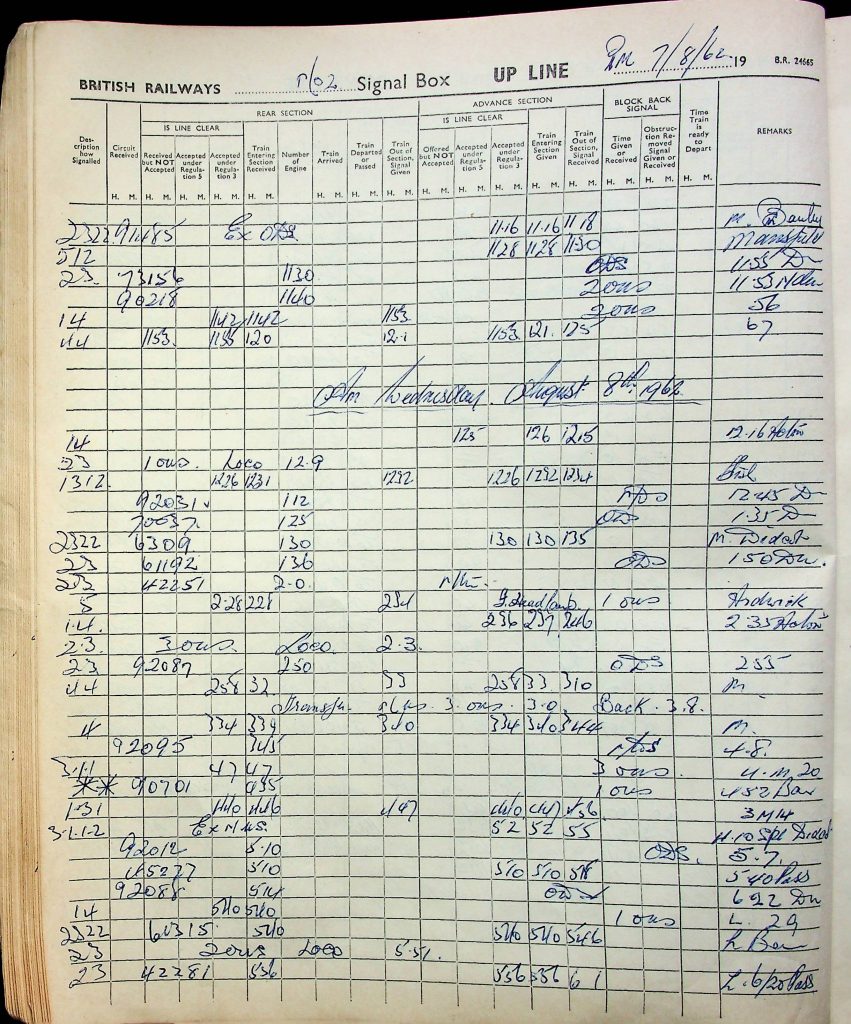 BRITISH RAILWAYS Signal Box UP LINE 7/8/62 19 B.R. 24665
REAR SECTION ADVANCE SECTION BLOCK BACK SIGNAL
IS LINE CLEAR IS LINE CLEAR
Description how Signalled Circuit Received Received but NOT Accepted Accepted under Regulation 5 Accepted under Regulation 3 Train Entering Section Received Number of Engine Train Arrived Train Departed or Passed Train Out of Section, Signal Given Offered but NOT Accepted Accepted under Regulation 5 Accepted under Regulation 3 Train Entering Section Given Train Out of Section, Signal Received Time Given or Received Obstruction Removed Signal Given or Received Time Train is ready to Depart REMARKS
H. M. H. M. H. M. H. M. H. M. H. M. H. M. H. M. H. M. H. M. H. M. H. M. H. M. H. M. H. M. H. M.
2322 91485 Ex ODS 11.16 11.16 11.18 M.
512 1128 1128 1130 Mansfield
23 73156 1130 ODS 11.55 Dn
90218 1140 2 ows 11.53
14 1142 1142 1153 2 ows 56
44 1153 1155 120 12.1 1153 121 125 67
Am Wednesday August 8th 1962
14 125 126 1215 12.16
23 1 ows. Loco 12.9
1312 1226 1231 1232 1226 1232 1234
92031 112 1245 Dn
70037 125 ODS 1.35 Dn
2322 6309 130 130 130 135 M. Didcot
23 61192 136 ODS 150 Dn.
232 42251 2.0.
5 2.28 228 234 1 ows Ardwick
1.4. 236 237 246 2.35
2.3. 3 ows. Loco. 2.3.
23 92087 250 ODS 255
44 258 32 33 258 33 310 M.
Transfer 3. ows. 3.0. Back. 3.8.
4 334 339 340 334 340 344 M.
92095 345 4.8.
3.1.1 47 47 3 ows. 4.M.20
** 90701 435 1 ows 452
1.31 440 446 447 440 447 456 3M14
3.1.1.2 Ex 52 52 55 4.10 Spl Didcot
92012 5.10 ODS. 5.7.
45277 510 510 510 518 540 Pass
92088 514 622 Dn
14 540 540 1 ows L. 29
2322 61315 540 540 540 546
23 2 ows Loco 5.51.
23 42281 556 556 556 6 1 L. 6/20 Pass